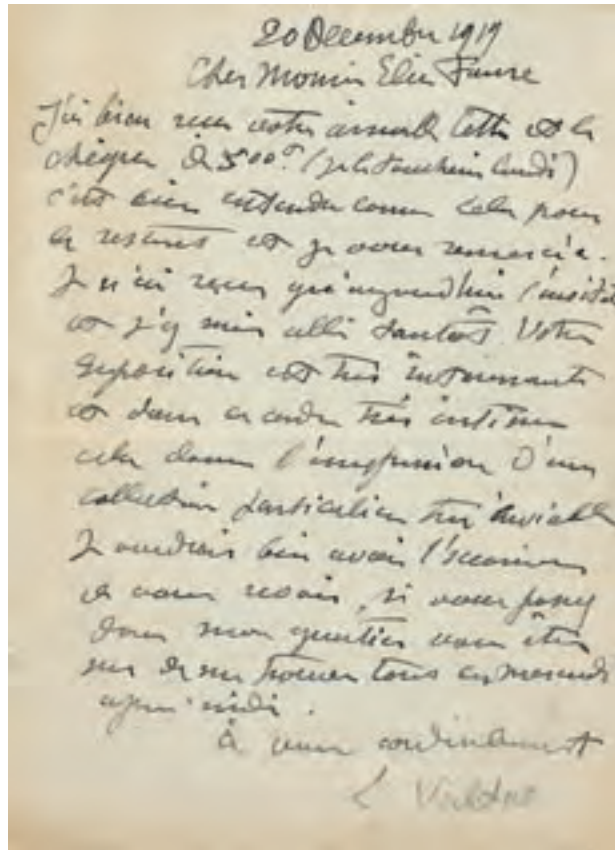 20 Decembre 1919
Cher Monsieur Elie Faure
J'ai bien reçu votre aimable lettre et le
chèque de 500f. (je le toucherai lundi)
c'est bien entendu comme cela pour
le restant et je vous remercie.
Je n'ai reçu qu'aujourd'hui l'invitation
et j'y suis allé tantôt. Votre
exposition est très intéressante
et dans ce cadre très intime
cela donne l'impression d'une
collection particulière très enviable
Je voudrais bien avoir l'occasion
de vous revoir, si vous passez
dans mon quartier vous êtes
sur de me trouver tous les mercredi
après midi.
à vous cordialement
L